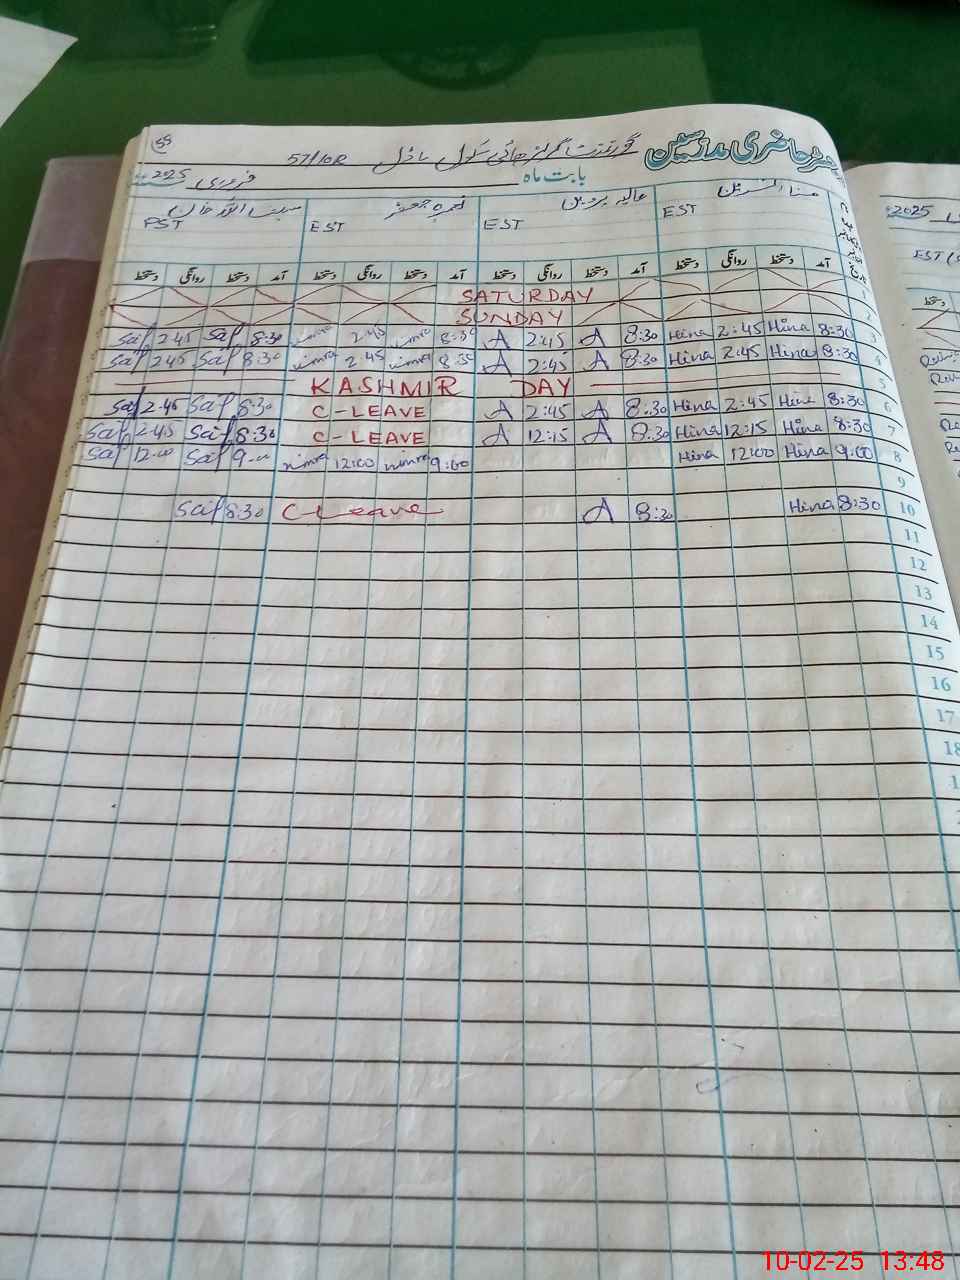 رجسٹر حاضری مدرسین گورنمنٹ گرلز ہائی سکول ماڈل 57/10R
بابت ماہ فروری 2025
حنا EST
عالیہ پروین EST
نمرہ جعفر EST
سیف اللہ خان PST
تاریخ آمد دستخط روانگی دستخط آمد دستخط روانگی دستخط آمد دستخط روانگی دستخط آمد دستخط روانگی دستخط
SATURDAY 1
SUNDAY 2
Saif 2:45 Saif 8:30 nimra 2:45 nimra 8:30 A 2:45 A 8:30 Hina 2:45 Hina 8:30 3
Saif 2:45 Saif 8:30 nimra 2:45 nimra 8:30 A 2:45 A 8:30 Hina 2:45 Hina 8:30 4
KASHMIR DAY 5
Saif 2:45 Saif 8:30 C-LEAVE A 2:45 A 8:30 Hina 2:45 Hina 8:30 6
Saif 2:45 Saif 8:30 C-LEAVE A 12:15 A 8:30 Hina 12:15 Hina 8:30 7
Saif 12:00 Saif 9:00 nimra 12:00 nimra 9:00 Hina 12:00 Hina 9:00 8
9
Saif 8:30 C Leave A 8:30 Hina 8:30 10
11
12
13
14
15
16
17
18
2025
EST
دستخط
10-02-25 13:48